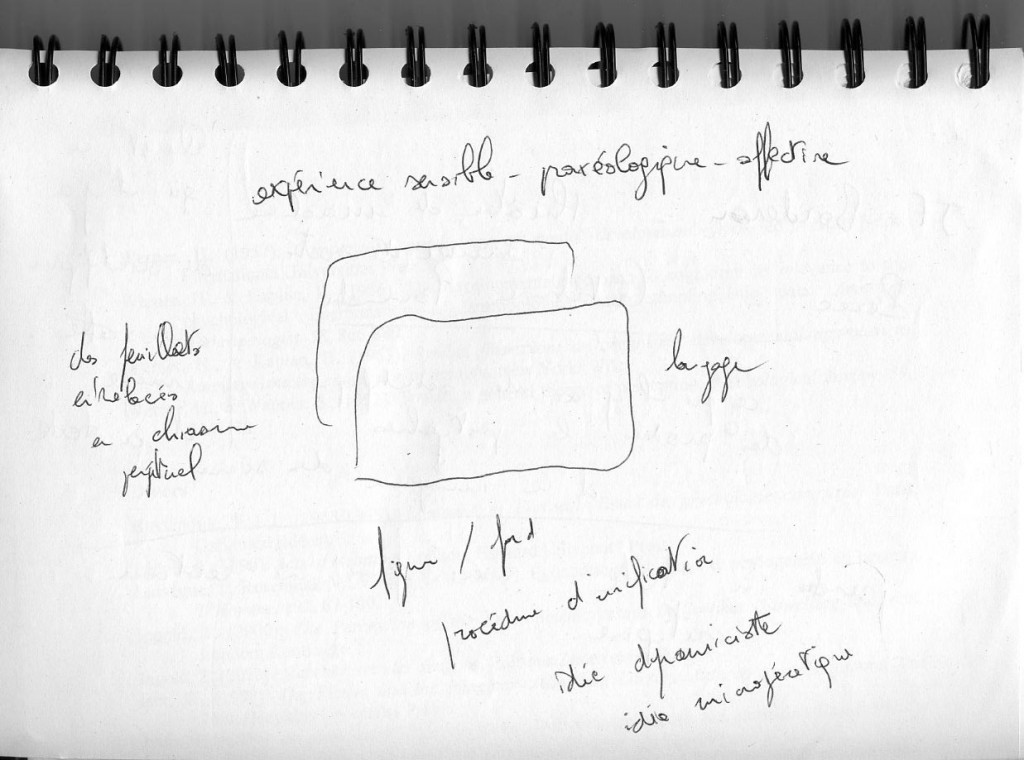 expérience sensible - praxéologique - affective
des feuillets
entrelacés
en chiasme
perpétuel
langage
figure / fond
procédure d'unification
idée dynamiciste
idée microgénétique